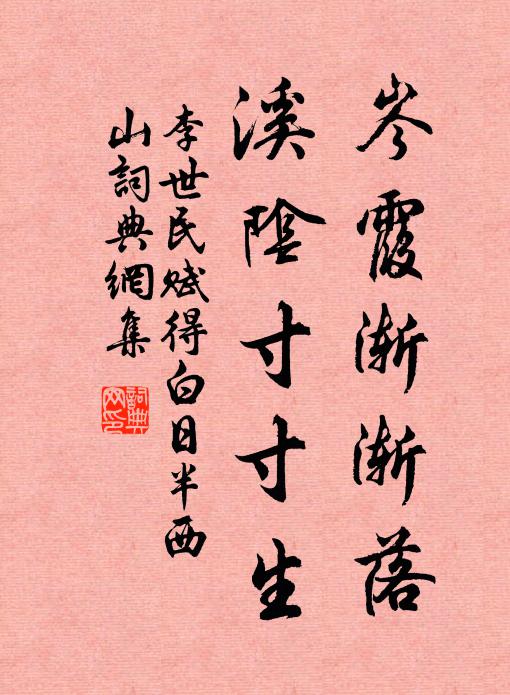 岑霞渐渐落
溪陰寸寸生
李世民赋得白日半西
山詞典網集
詞典网印